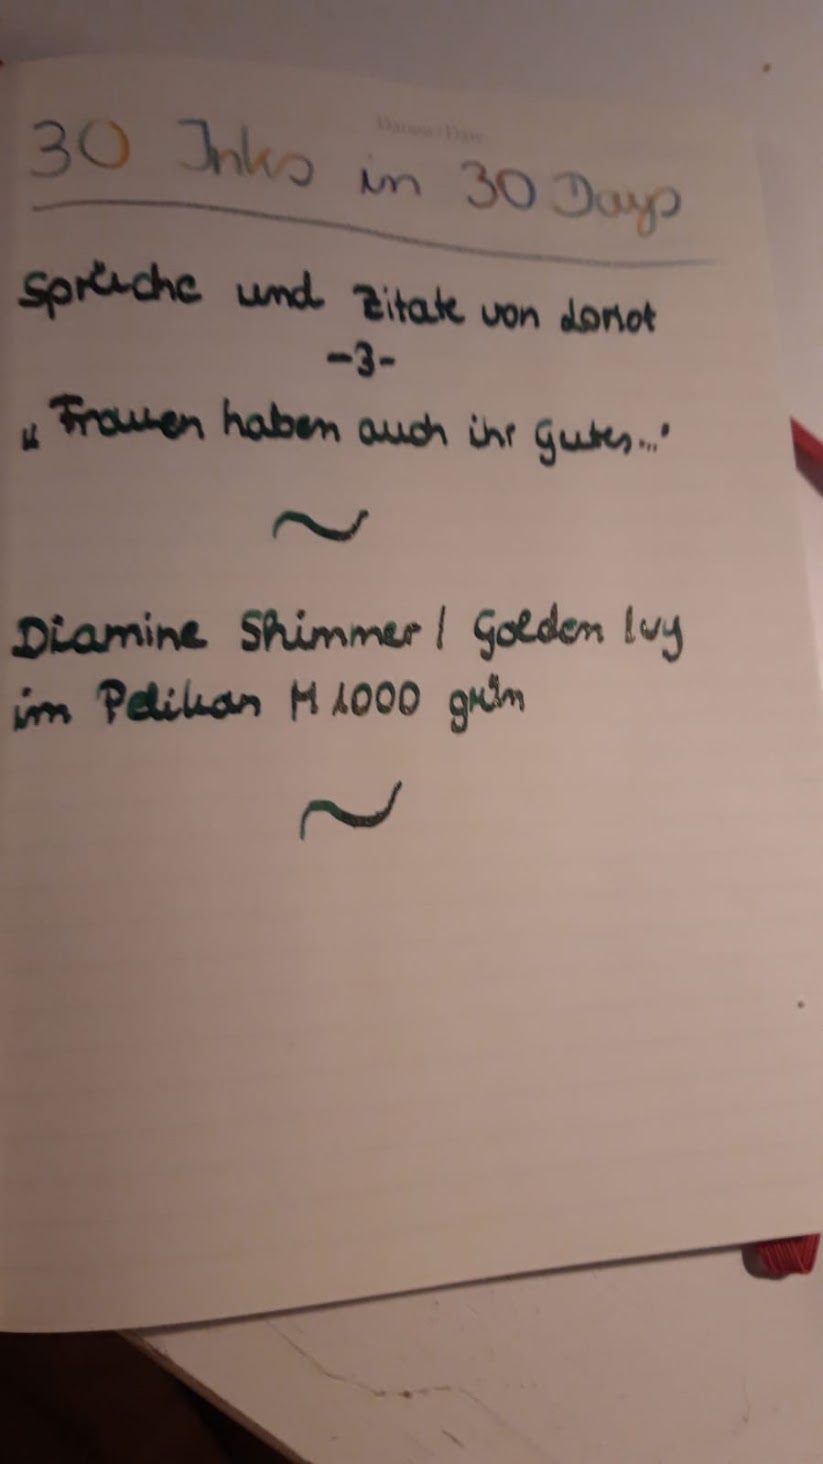 Datum/Date
30 Inks in 30 Days
Sprüche und Zitate von Loriot
-3-
„Frauen haben auch ihr Gutes..."
~
Diamine Shimmer / Golden Ivy
im Pelikan M 1000 grün
~